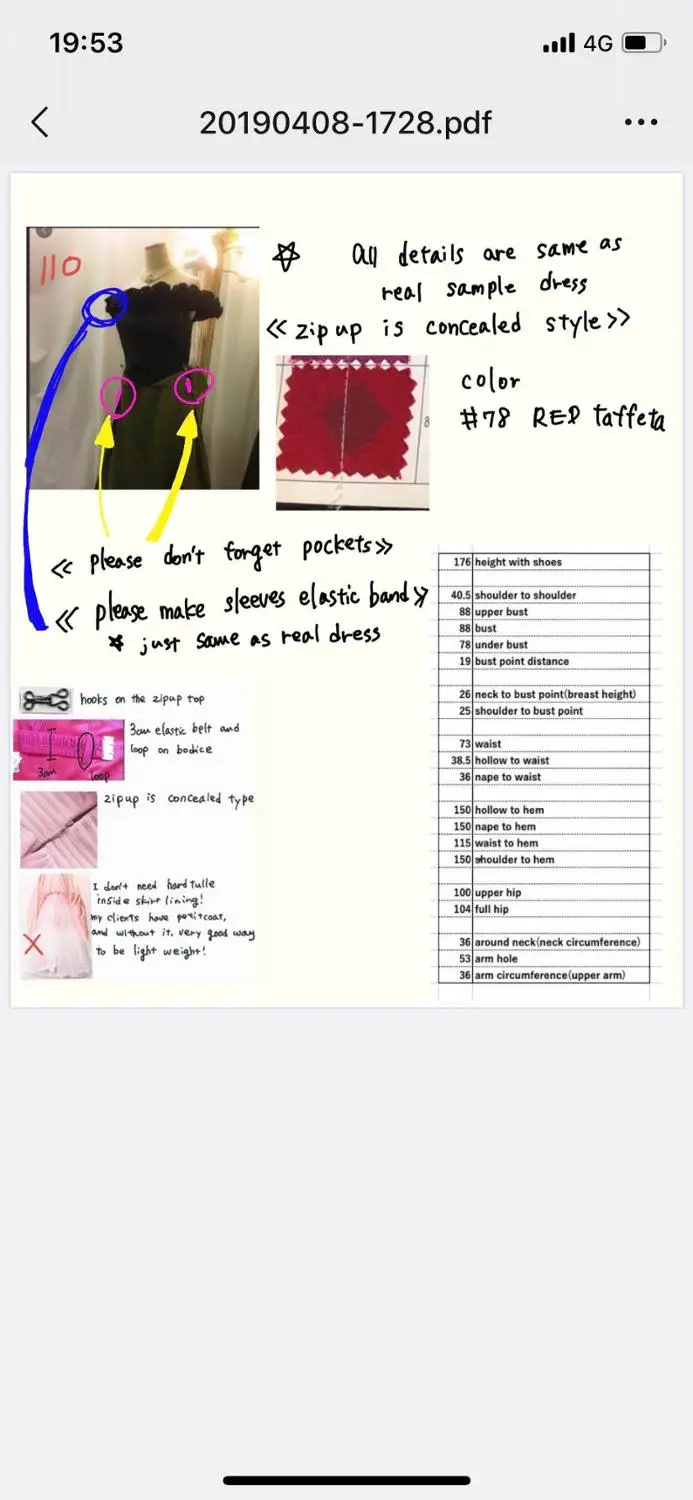 19:53
4G
20190408-1728.pdf
110
☆ All details are same as
real sample dress
《 zip up is concealed style 》
color
#78 RED taffeta
8
《 please don't forget pockets 》
《 please make sleeves elastic band 》
* just same as real dress
hooks on the zipup top
3cm elastic belt and
loop on bodice
3cm
loop
zipup is concealed type
I don't need hard tulle
inside skirt lining!
my clients have petitcoat,
and without it, very good way
to be light weight!
176 height with shoes
40.5 shoulder to shoulder
88 upper bust
88 bust
78 under bust
19 bust point distance
26 neck to bust point(breast height)
25 shoulder to bust point
73 waist
38.5 hollow to waist
36 nape to waist
150 hollow to hem
150 nape to hem
115 waist to hem
150 shoulder to hem
100 upper hip
104 full hip
36 around neck(neck circumference)
53 arm hole
36 arm circumference(upper arm)